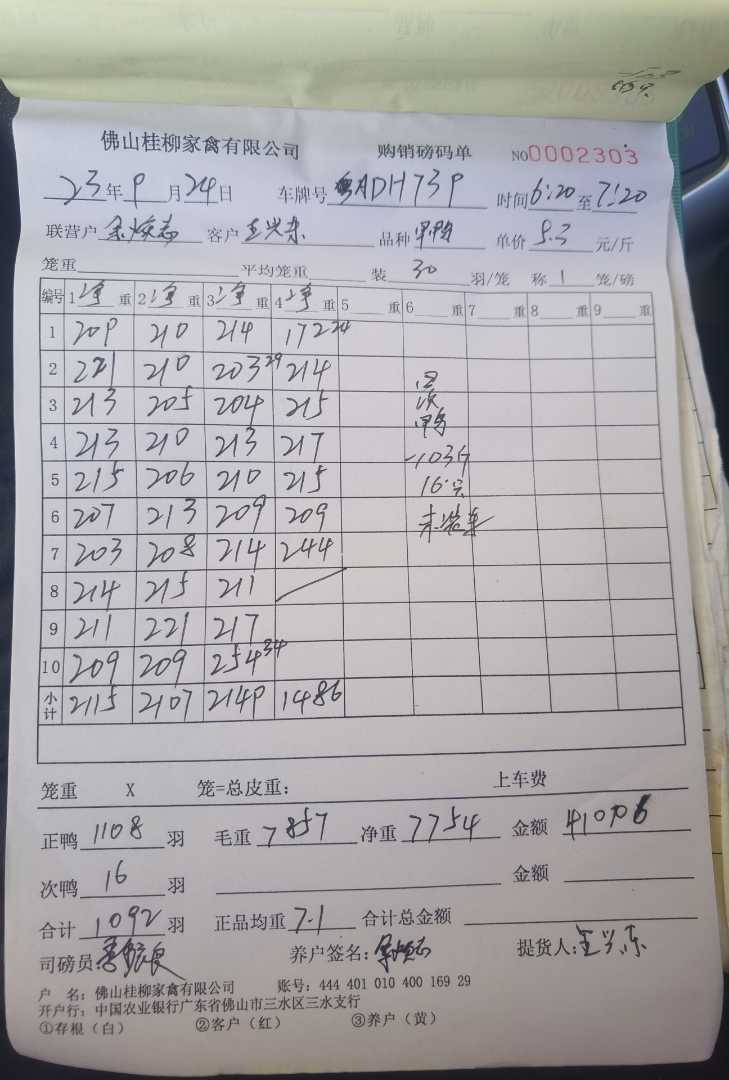 佛山桂柳家禽有限公司 购销磅码单 NO0002303
23年9月24日 车牌号粤ADH739 时间6:20至7:20
联营户 客户王兴东 品种 单价5.3元/斤
笼重 平均笼重 装30羽/笼 称1笼/磅
编号 1净重 2净重 3净重 4净重 5重 6重 7重 8重 9重
1 209 210 214 172 24
2 221 210 203 29 214
3 213 205 204 215
4 213 210 213 217
5 215 206 210 215
6 207 213 209 209
7 203 208 214 244
8 214 215 211
9 211 221 217
10 209 209 254 34
小计 2115 2107 2149 1486
回
次
-103斤
16只
未装车
笼重 X 笼=总皮重: 上车费
正鸭1108羽 毛重7857 净重7754 金额41096
次鸭16羽 金额
合计1092羽 正品均重7.1 合计总金额
司磅员: 养户签名: 提货人:王兴东
户 名:佛山桂柳家禽有限公司 账号:444 401 010 400 169 29
开户行:中国农业银行广东省佛山市三水区三水支行
①存根(白) ②客户(红) ③养户(黄)